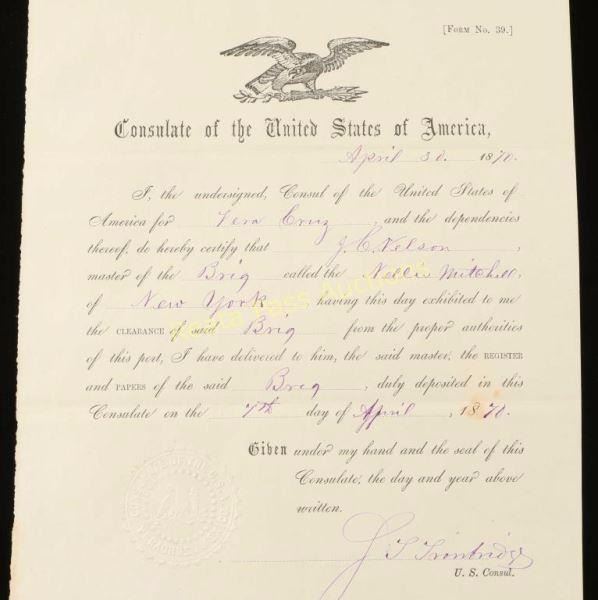 [Form No. 39.]
Consulate of the United States of America,
April 30. 1870.
I, the undersigned, Consul of the United States of
America for Vera Cruz, and the dependencies
thereof, do hereby certify that J. C. Nelson,
master of the Brig called the Nellie Mitchell,
of New York having this day exhibited to me
the CLEARANCE of said Brig from the proper authorities
of this port, I have delivered to him, the said master, the REGISTER
and PAPERS of the said Brig, duly deposited in this
Consulate on the 7th day of April, 1870.
Given under my hand and the seal of this
Consulate, the day and year above
written.
J T Trowbridge
U. S. Consul.